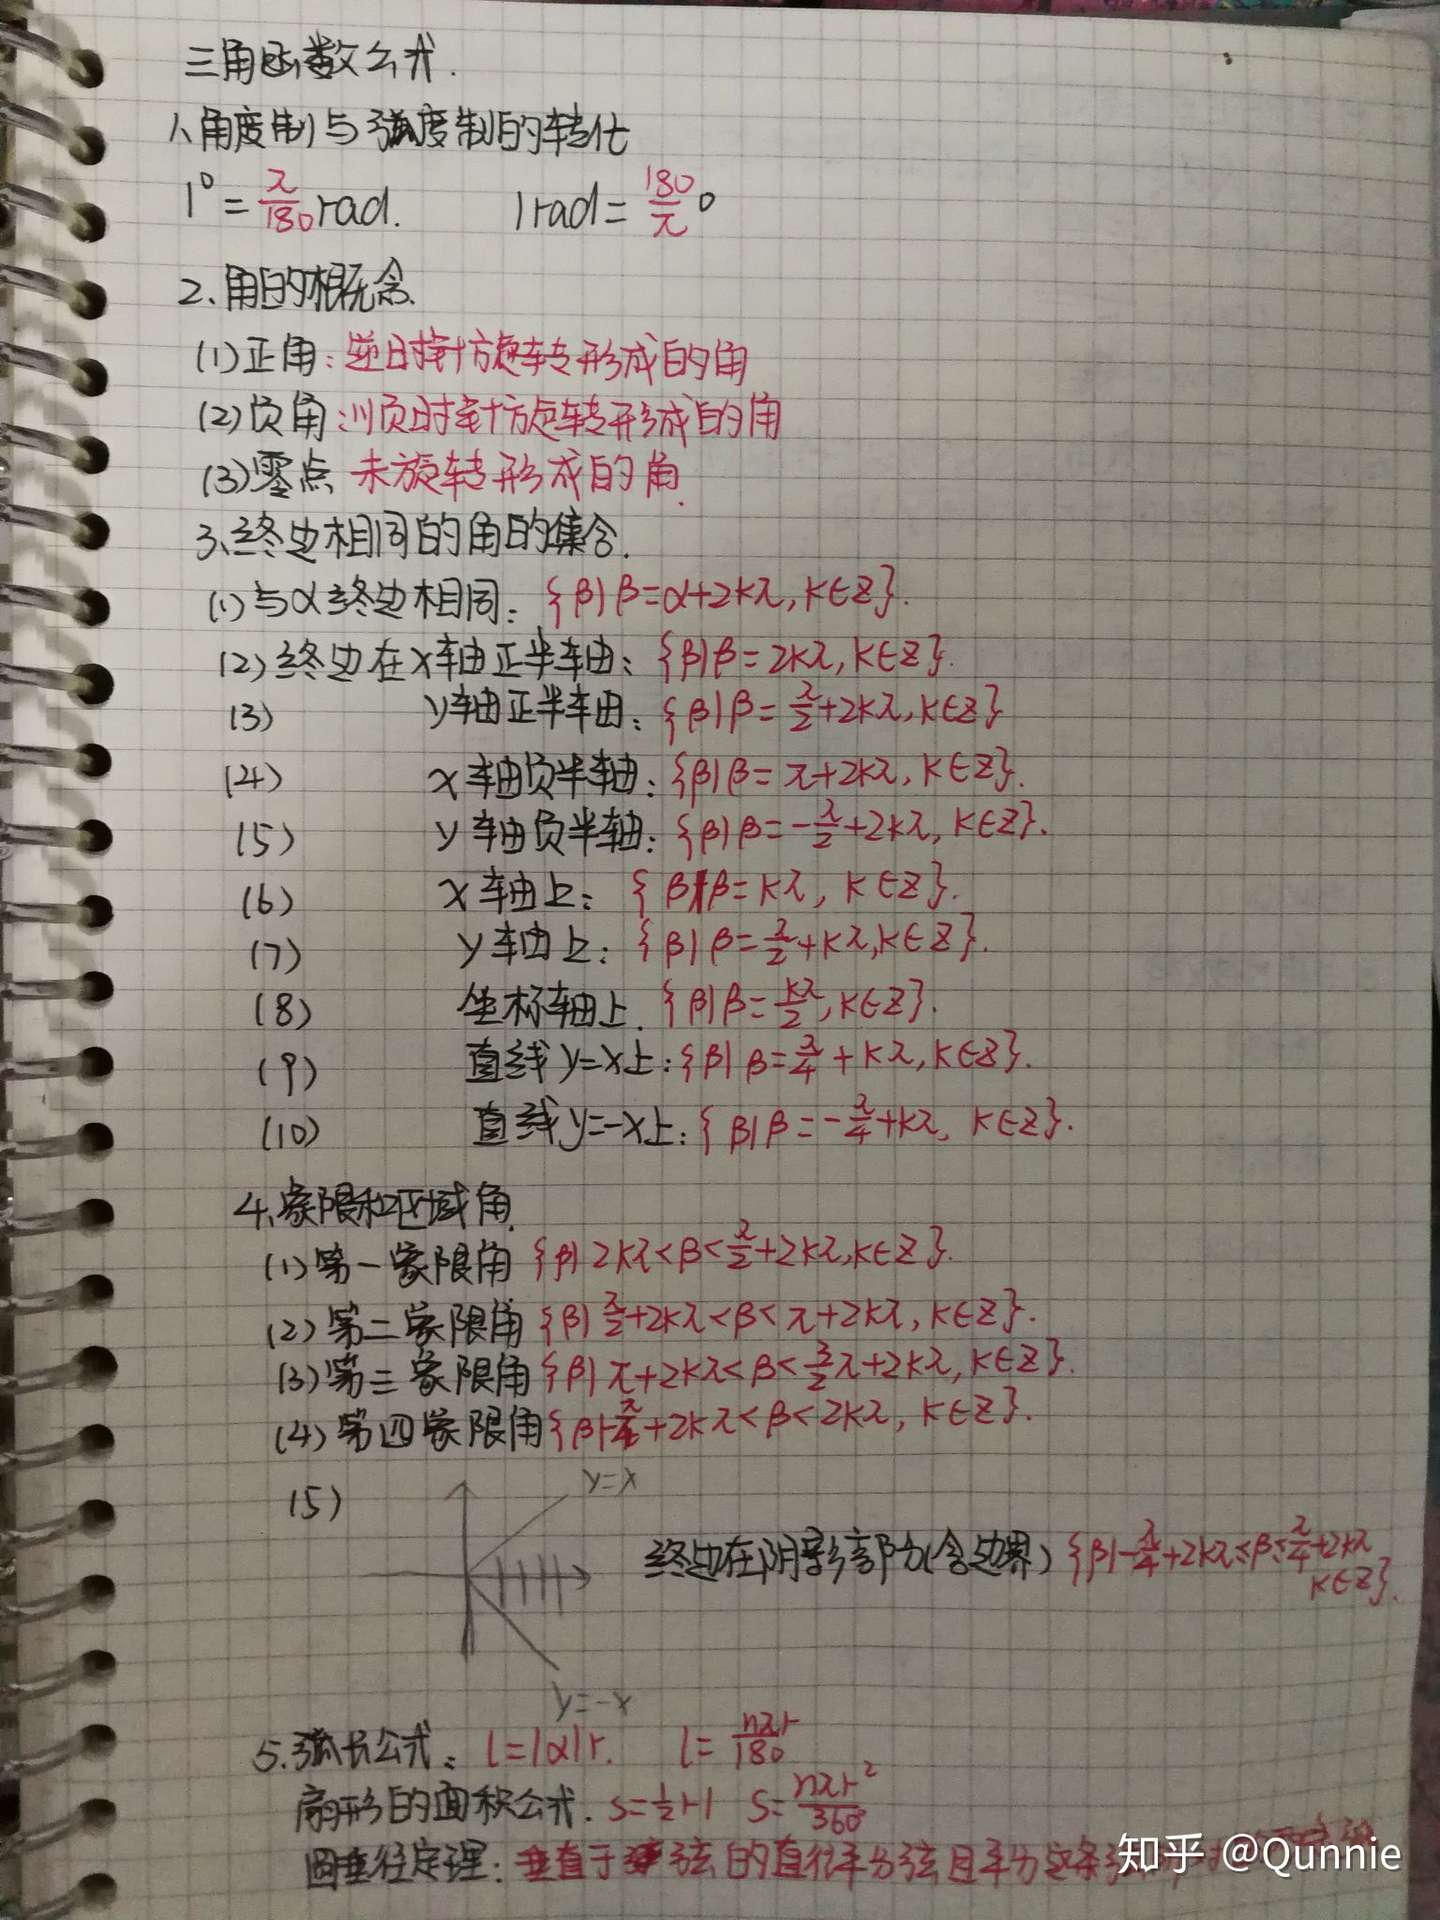 三角函数公式.
1、角度制与弧度制的转化
1°=π/180 rad. 1rad=180/π °
2、角的概念.
(1)正角:逆时针方旋转形成的角
(2)负角:顺时针方旋转形成的角
(3)零点 未旋转形成的角.
3、终边相同的角的集合.
(1)与α终边相同:{β|β=α+2kπ,k∈Z}.
(2)终边在x轴正半轴:{β|β=2kπ,k∈Z}.
(3) y轴正半轴:{β|β=π/2+2kπ,k∈Z}
(4) x轴负半轴:{β|β=π+2kπ,k∈Z}.
(5) y轴负半轴:{β|β=-π/2+2kπ,k∈Z}.
(6) x轴上:{β|β=kπ,k∈Z}.
(7) y轴上:{β|β=π/2+kπ,k∈Z}.
(8) 坐标轴上.{β|β=kπ/2,k∈Z}.
(9) 直线y=x上:{β|β=π/4+kπ,k∈Z}.
(10) 直线y=-x上:{β|β=-π/4+kπ,k∈Z}.
4、象限和区域角.
(1)第一象限角{β|2kπ<β<π/2+2kπ,k∈Z}.
(2)第二象限角{β|π/2+2kπ<β<π+2kπ,k∈Z}.
(3)第三象限角{β|π+2kπ<β<3/2π+2kπ,k∈Z}.
(4)第四象限角{β|+2kπ<β<2kπ,k∈Z}.
y=x
(5)
终边在阴影部分(含边界){β|-π/4+2kπ≤β≤π/4+2kπ
k∈Z}.
y=-x
5.弧长公式:l=|α|r. l=nπr/180
扇形的面积公式.S=1/2rl S=nπr²/360
圆垂径定理:垂直于弦的直径平分弦且平分这条
知乎 @Qunnie